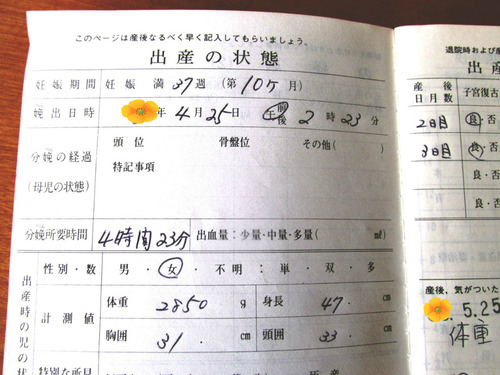 このページは産後なるべく早く記入してもらいましょう。
出産の状態
妊娠期間 妊娠 満 37週 (第10ヶ月)
娩出日時 年 4月 25日 午 前 後 2時 23分
分娩の経過 (母児の状態)
頭位 骨盤位 その他( )
特記事項
分娩所要時間 4時間23分 出血量:少量・中量・多量( ㎖)
出産時の児の状
性別・数 男・女・不明:単・双・多
計測値
体重 2850 g 身長 47. cm
胸囲 31. cm 頭囲 33. cm
特別な所見
退院時および産
出産
産後日月数 子宮復古
2日目 良・否
3日目 良・否
良・否
良・否
産後、気がついた
5.25
体重